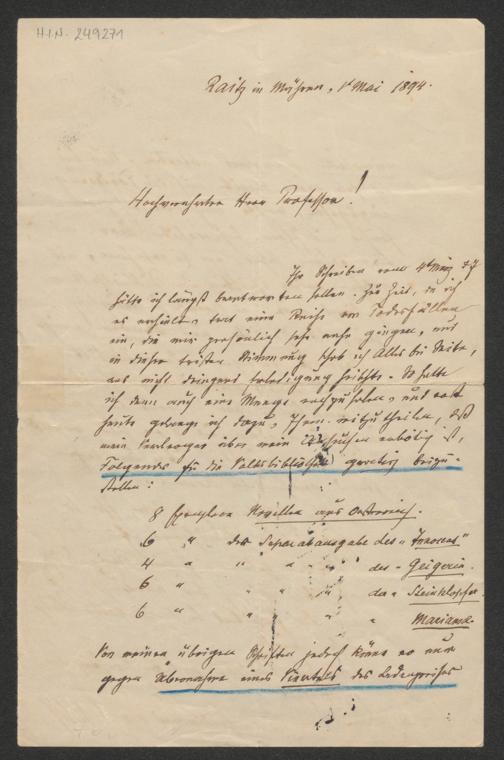 H.I.N. 249271
Raitz in Mähren, 1t Mai 1894.
Hochverehrter Herr Professor!
Ihr Schreiben vom 4t März d. J.
hätte ich längst beantworten sollen. Zur Zeit, da ich
es erhielt, trat eine Reihe von Todesfällen
ein, die mir persönlich sehr nahe gingen, und
in dieser tristen Stimmung schob ich Alles bei Seite,
was nicht dringend Erledigung heischte. So hatte
ich denn auch eine Menge nachzuholen, und erst
heute gelange ich dazu, Ihnen mitzutheilen, daß
mein Verleger über mein Ersuchen erbötig ist,
Folgendes für die Volksbibliothek gratis beizu-
stellen:
8 Exemplare Novellen aus Oesterreich.
6 " der Separatausgabe des "Innocens"
4 " " " " der "Geigerin.
6 " " " " des "Steinklopfer
6 " " " " Marianne.
Von meinen übrigen Schriften jedoch könne er nur
gegen Übernahme eines Viertels des Ladenpreises